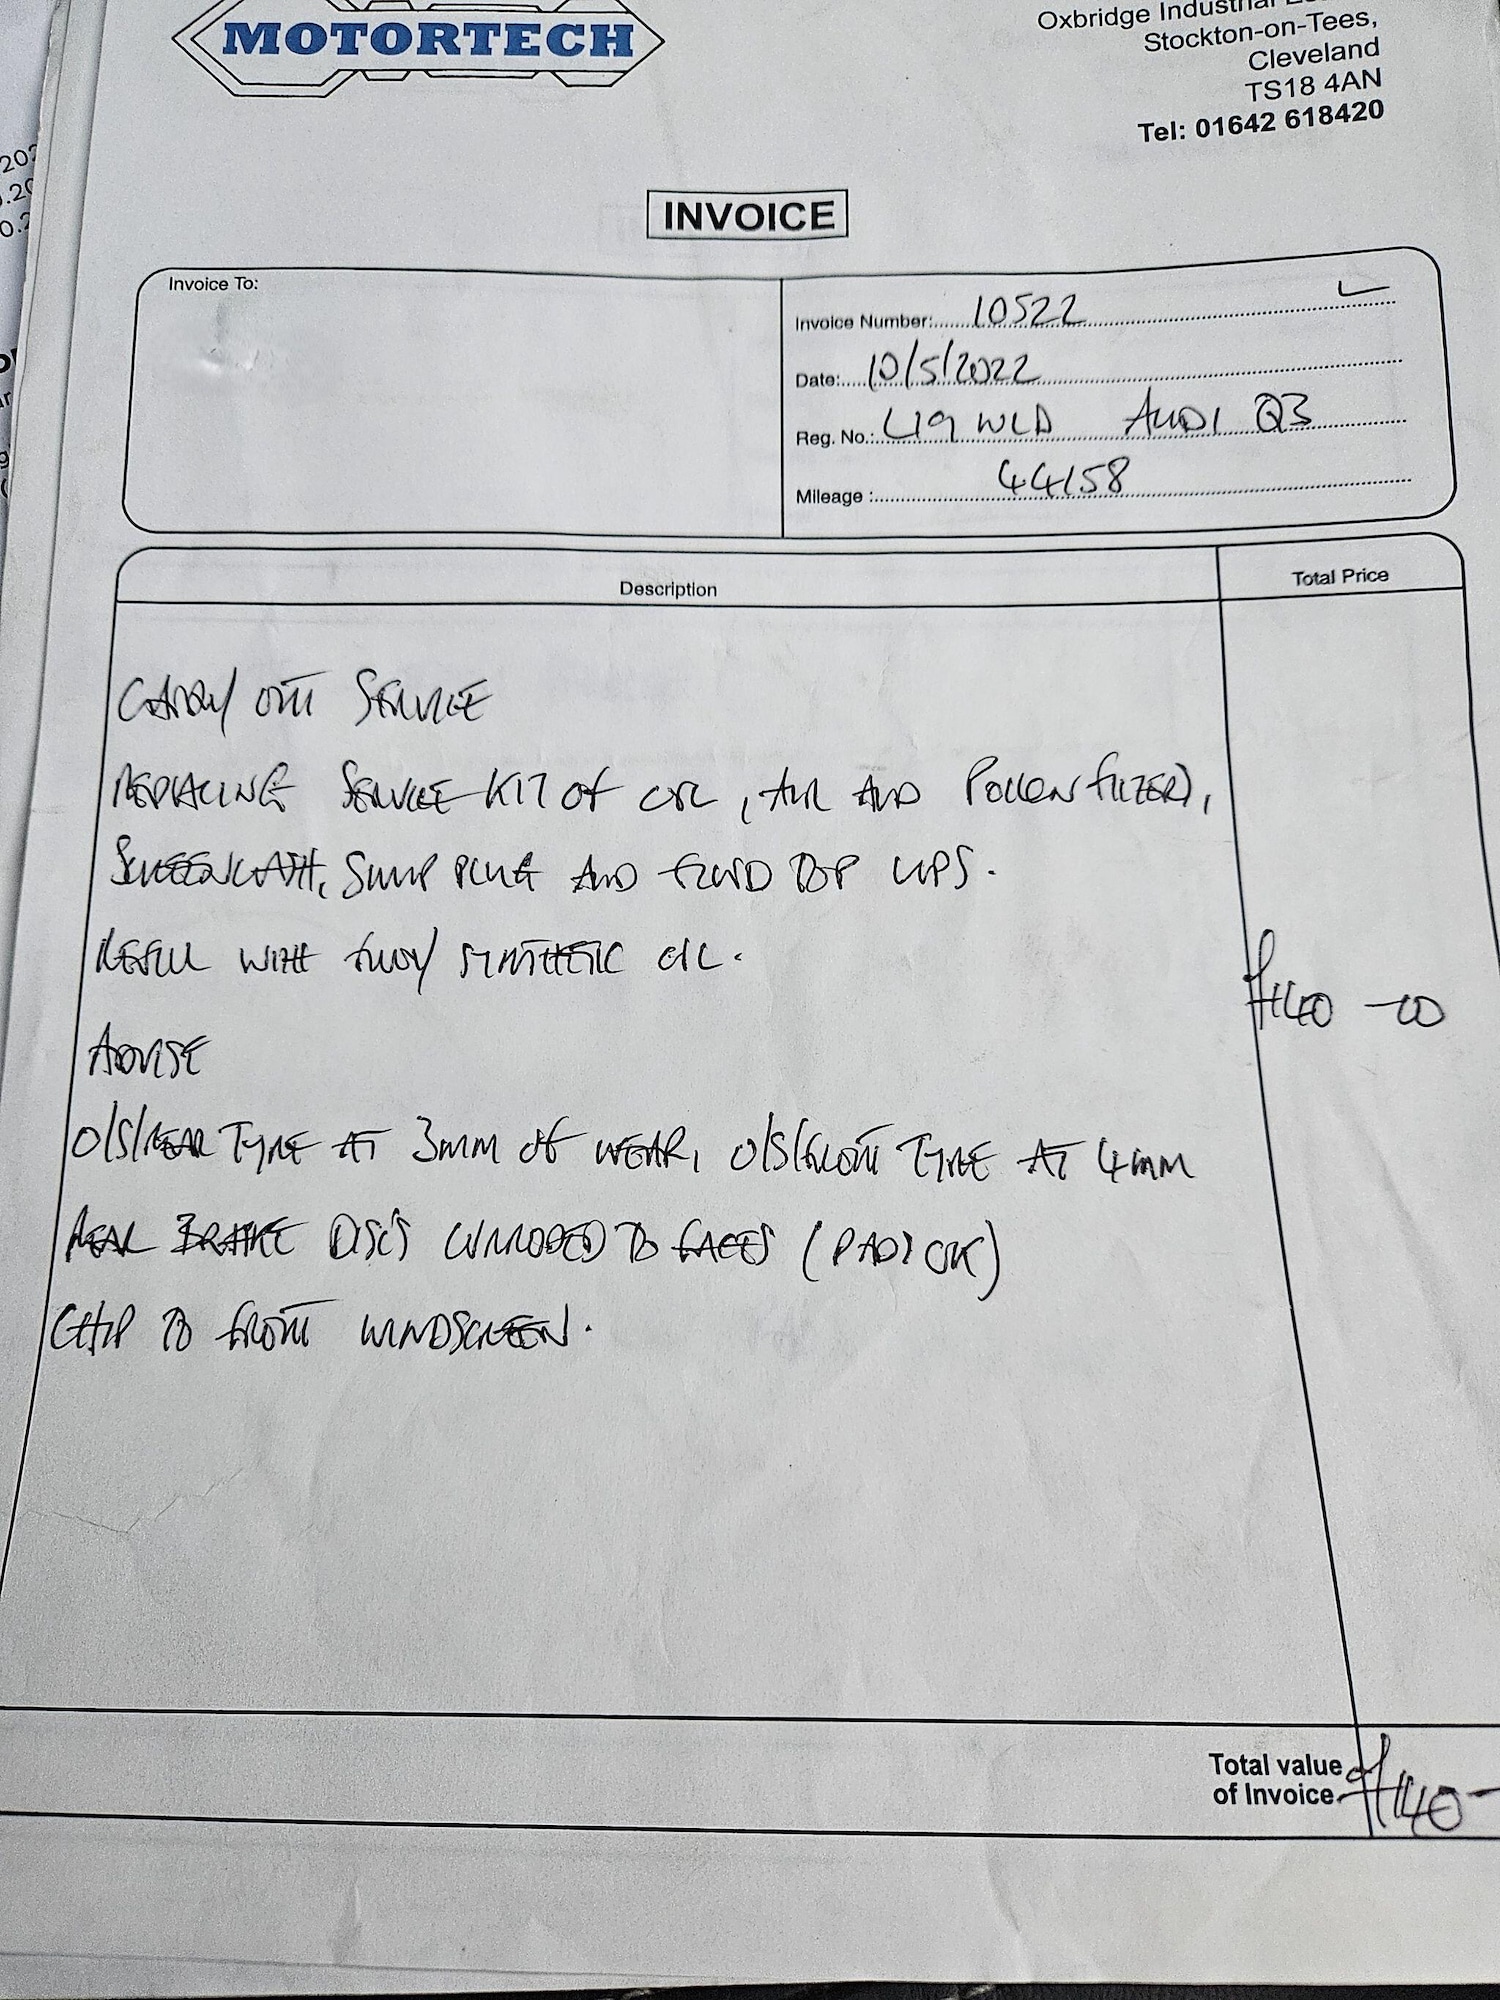 MOTORTECH
Oxbridge Industrial
Stockton-on-Tees,
Cleveland
TS18 4AN
Tel: 01642 618420
INVOICE
Invoice To:
Invoice Number: 10522
Date: 10/5/2022
Reg. No.: L19 WLD AUDI Q3
Mileage : 44158
Description
Total Price
CARRY OUT SERVICE
REPLACING SERVICE KIT OF OIL, AIR AND POLLEN FILTERS,
SCREENWASH, SUMP PLUG AND FLUID TOP UPS.
REFILL WITH FULLY SYNTHETIC OIL.
£140-00
ADVISE
O/S/REAR TYRE AT 3MM OF WEAR, O/S/FRONT TYRE AT 4MM
REAR BRAKE DISCS CORRODED TO FACES (PADS OK)
CHIP TO FRONT WINDSCREEN.
Total value
of Invoice
£140-